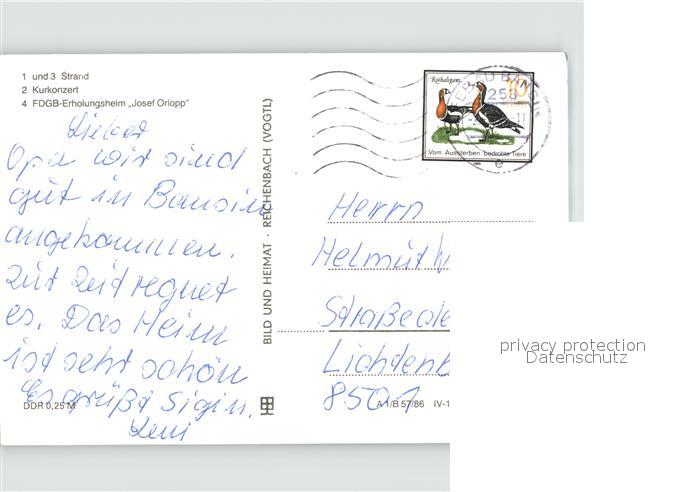 1 und 3 Strand
2 Kurkonzert
4 FDGB-Erholungsheim „Josef Orlopp“
Lieber
Opa wir sind
gut in Bansin
angekommen.
Zur Zeit regnet
es. Das Heim
ist sehr schön
Es grüßt
DDR 0,25 M
BILD UND HEIMAT · REICHENBACH (VOGTL)
Rothalsgans
10
Vom Aussterben bedrohte Tiere
258
e
Herrn
Helmuth
Straße
Lichten
8501
A 1/B 57/86 IV-1
privacy protection
Datenschutz